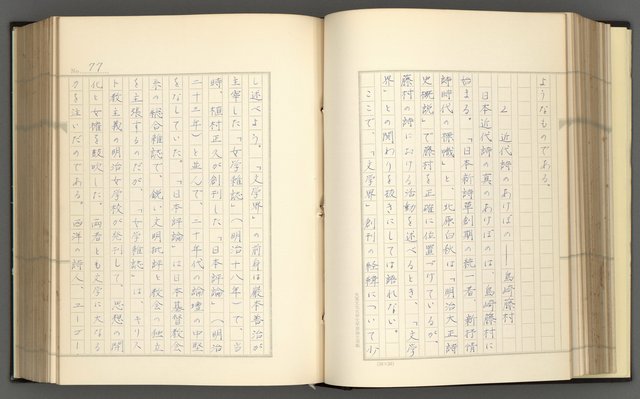 ようなものである。
2 近代詩のあけぼの——島崎藤村
日本近代詩の真のあけぼのは、島崎藤村に
始まる。「日本新詩草創期の統一者、新抒情
詩時代の標幟」と、北原白秋は「明治大正詩
史概説」で藤村を正確に位置づけているが、
藤村の詩における活動を述べるとき、「文学
界」との関わりを抜きにしては語れない。
ここで、「文学界」創刊の経緯について少
(20×20)
No. 77
し述べよう。「文学界」の前身は巌本善治が
主宰した「女学雑誌」(明治十八年)で、当
時、植村正久が創刊した「日本評論」(明治
二十三年)と並んで、二十年代の論壇の中堅
をなしていた。「日本評論」は日本基督教会
系の総合雑誌で、鋭い文明批評と教会の独立
を主張するのだが、「女学雑誌」は、キリス
ト教主義の明治女学校が発刊して、思想の開
化と女権を鼓吹した。両者とも文学に大なる
力を注いだのである。西洋の詩人、ユーゴー、